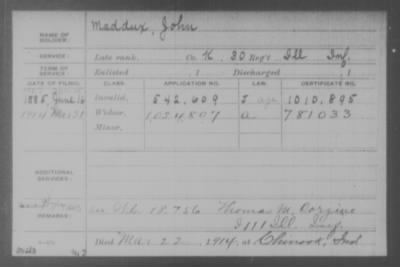 Maddux, John
NAME OF SOLDIER:
SERVICE: Late rank, Co. K, 30 Reg't Ill Inf.
TERM OF SERVICE: Enlisted , 1 Discharged , 1
DATE OF FILING. CLASS. APPLICATION NO. LAW. CERTIFICATE NO.
1885 June 16 Invalid, 542,609 1010,895
1914 Mar 31 Widow, 1,024,807 a 781033
Minor,
ADDITIONAL SERVICES:
REMARKS: 18.756 Thomas M.
I 111 Ill. Inf.
Died Mar 22, 1914, at Ind